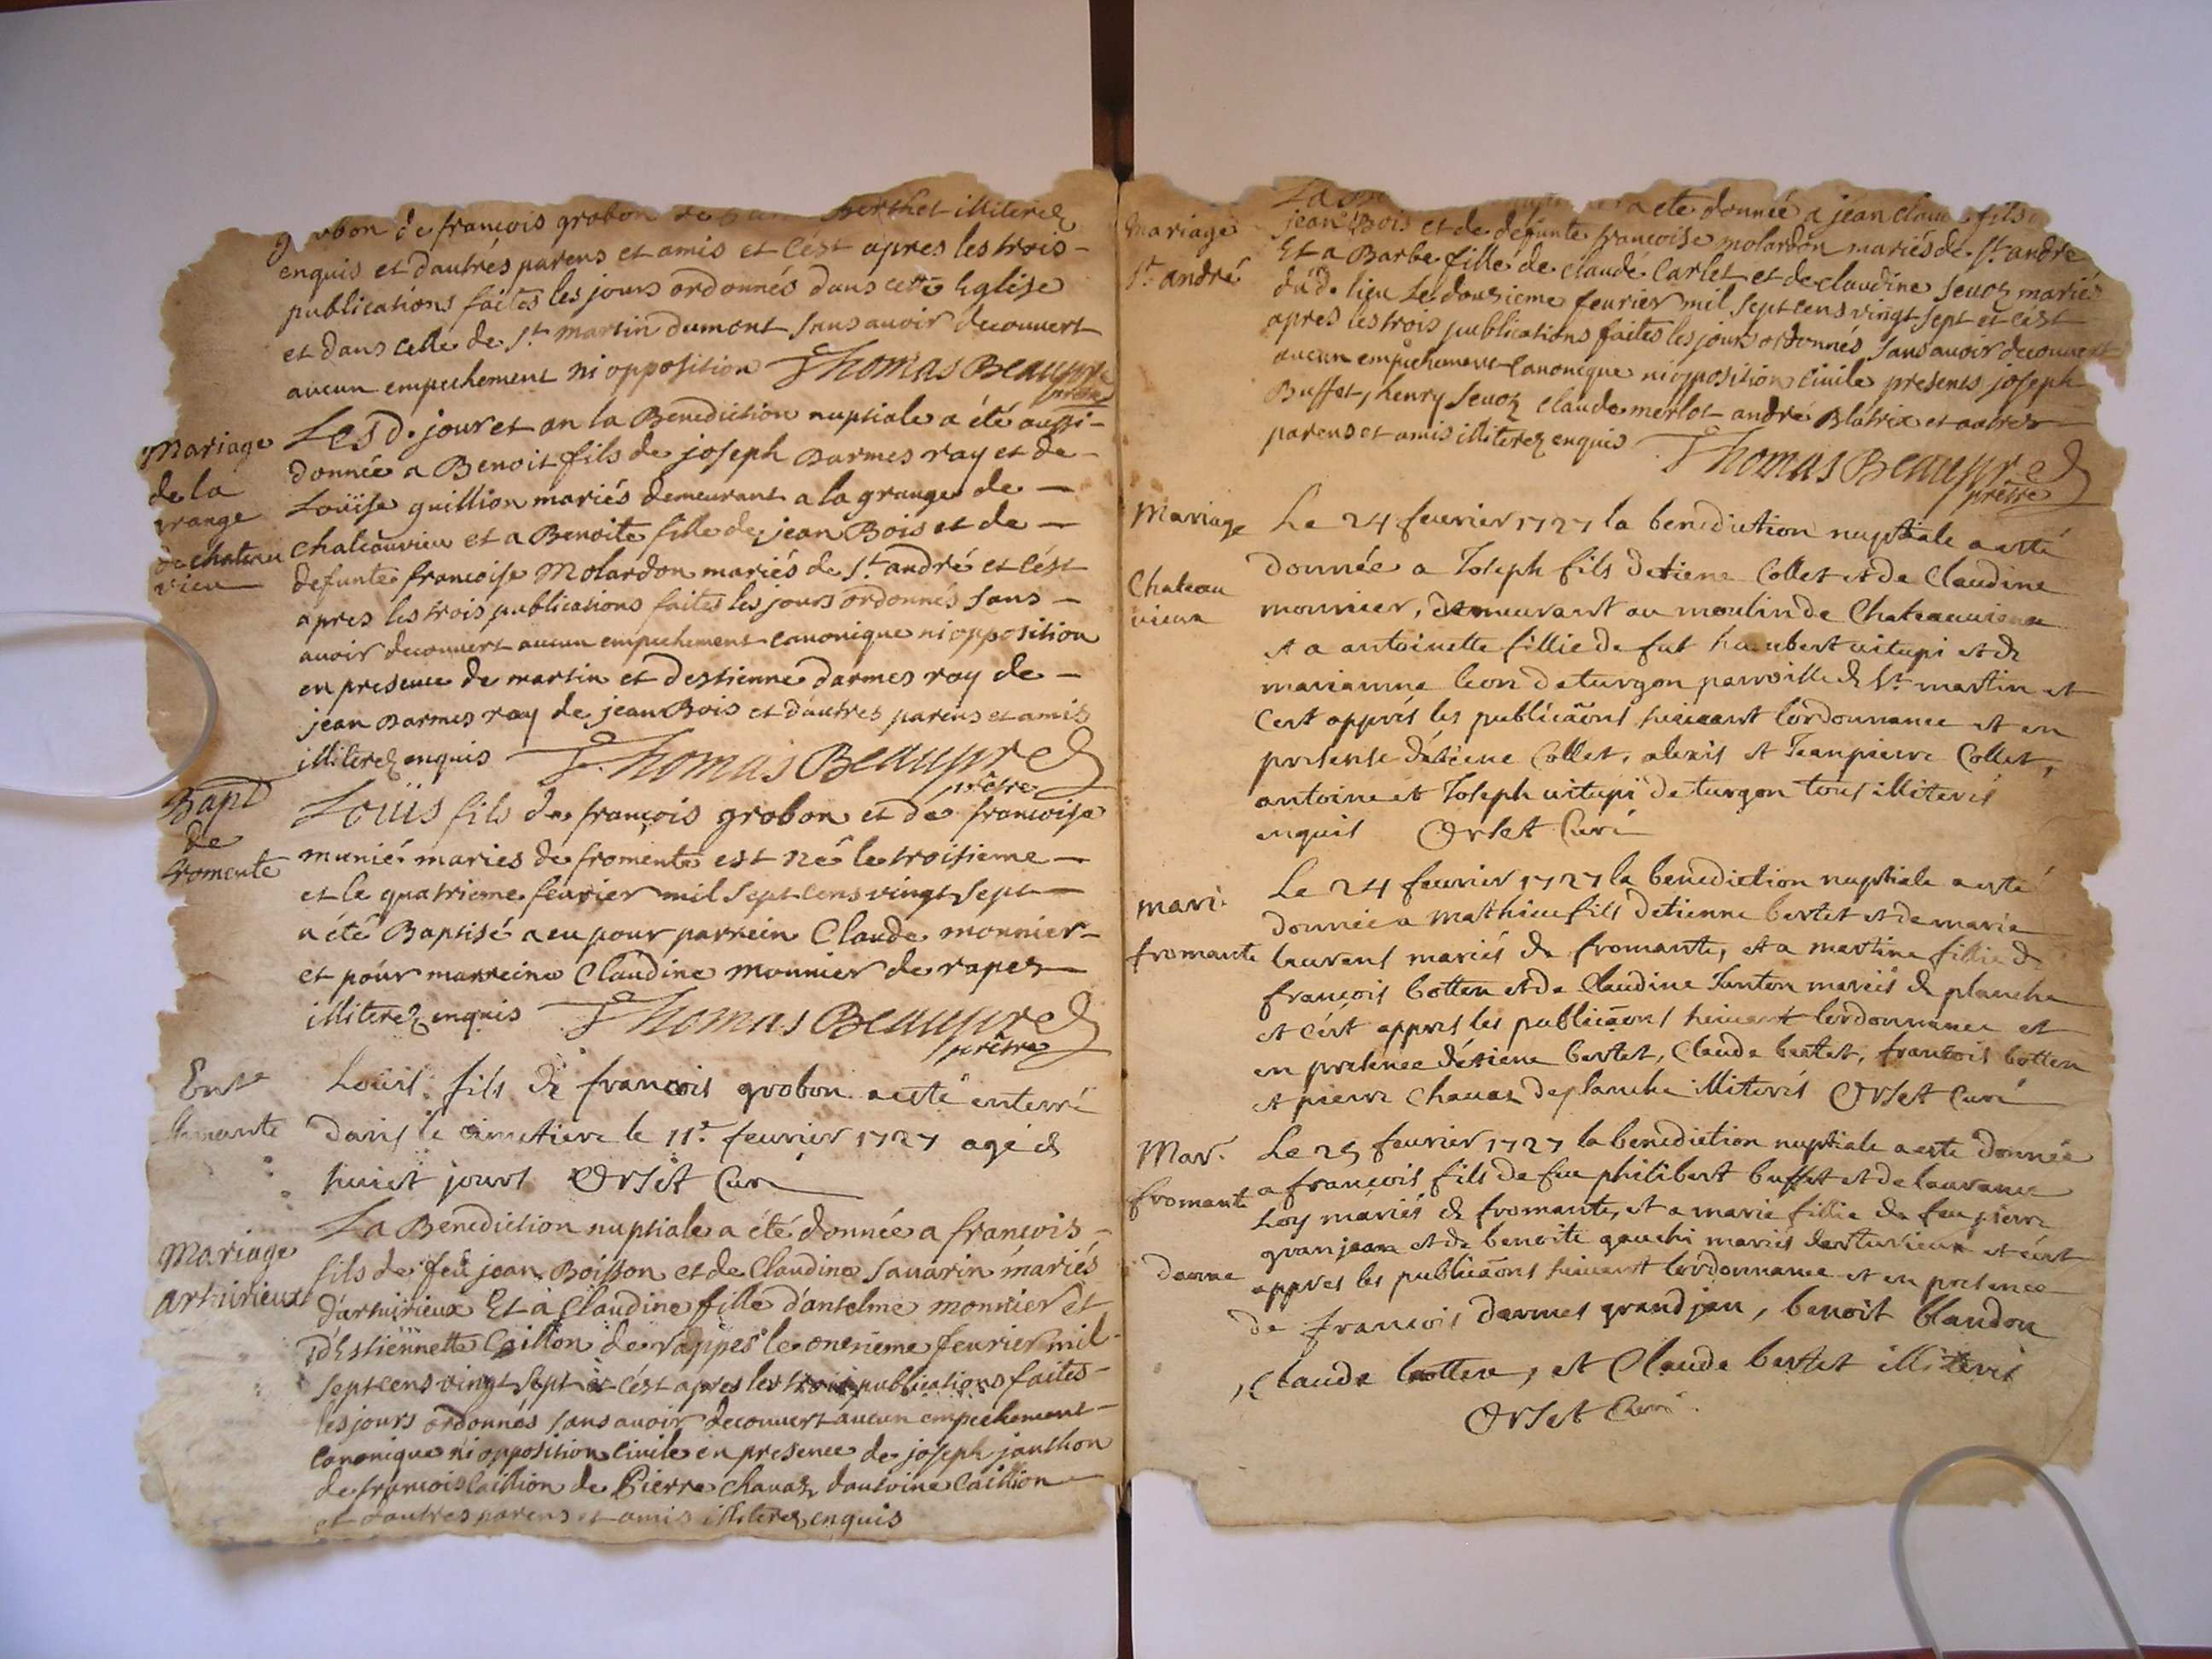 grobon de françois grobon de berthet illiterez
enquis et d'autrés parens et amis et c'ést apres les trois
publications faites les jours ordonnés dans cette Eglise
et dans celle de St. martin dumont sans auoir decouuert
aucun empechement ni opposition Thomas Beaupre
prêtre
Mariage
de la
grange
de chateau
vieu
Les d. jour et an la Benediction nuptiale a été aussi
donnée a Benoit fils de joseph Darmes ray et de
Loüise guillion mariés demeurant a la grange de
chateâuvieu et a Benoite fille de jean Bois et de
defunte francoise Molardon mariés de St. andré et c'ést
apres les trois publications faites les jours ordonnés sans
auoir decouuert aucun empechement canonique ni opposition
en presence de martin et destienne darmes ray de
jean Darmes ray de jean Bois et d'autres parens et amis
illiterez enquis Thomas Beaupre
prêtre
Bapt
de
fromente
Loüis fils de françois grobon et de francoise
munié mariés de fromente est né le troisieme
et le quatrieme feurier mil sept cens vingt sept
a été Baptisé a eu pour parrein Claude monnier
et pour marreine Claudine monnier de rapes
illiterez enquis Thomas Beaupre
prêtre
Ent
fromante
Louis fils de francois grobon a esté enterré
dans le cimetiere le 11e. feurier 1727 agé de
huict jours Orset Curé
Mariage
arturieux
La Benediction nuptiale a été donnée a françois
fils de feû jean Boisson et de Claudine Sauarin mariés
d'arturieux Et a Claudine fille d'antelme monnier et
d'Estiennette Caillon de rappes le onzieme feurier mil
sept cens vingt sept et c'ést apres les trois publications faites
les jours ordonnés sans auoir decouuert aucun empechement
canonique ni opposition ciuile en presence de joseph janthon
de françois Caillion de Pierre chauaz d'antoine Caillion
et d'autres parens et amis illiterez enquis
Mariage
St. andré
La a eté donnée a jean claude fils
jean Bois et de défunte françoise molardon mariés de St. andre
Et a Barbe fille de claude Carlet et de claudine Seuoz mariés
du d. lieu Le douzieme feurier mil sept cens vingt sept et c'ést
apres les trois publications faites les jours ordonnés sans auoir decouuert
aucun empêchement Canonique ni opposition ciuile presents joseph
Buffet, henry Seuoz Claude merlot andré Blatrix et autres
parens et amis illiterez enquis Thomas Beaupre
prêtre
Mariage
Chateau
uieux
Le 24 feurier 1727 la benediction nuptiale a esté
donnée a Joseph fils detiene Collet et de Claudine
monnier, demeurant au moulin de Chateauuieux
et a antoinette fillie de fut humbert uitupi et de
marianne leon de turgon parroisse de St. martin et
C'est apprés les publicaõns suiuant l'ordonnance et en
presense d'étiene Collet, alexis et Jeanpierre Collet,
antoine et Joseph uitupi de turgon tous illiterés
enquis Orset Curé
mari.
fromante
Le 24 feurier 1727 la benediction nuptiale a esté
donnée a mathieu fils detienne bertet et de marie
laurent mariés de fromante, et a martine fillie de
françois botten et de Claudine Janton mariés de planche
et c'est appres les publicaõns suiuant l'ordonnance et
en presence d'étiene bertet, Claude bertet, francois botten
et pierre Chauaz de planche illiterés Orset Curé
Mar.
fromante
Le 25 feurier 1727 la benediction nuptiale a esté donnée
a françois fils de feu philibert buffet et de laurance
Loy mariés de fromante, et a marie fillie de feu pierre
darme granjean et de benoite gauchi mariés darturieux et c'est
appres les publicaõns suiuant l'ordonnance et en presence
de francois darmes grandjan, benoit blandon
, Claude botten, et Claude bertet illiterés
Orset Curé